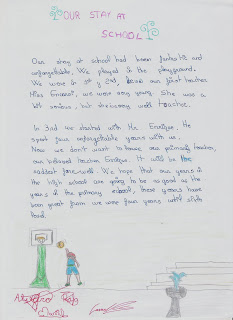 OUR STAY AT
SCHOOL
Our stay at school had been fantastic and
unforgettable. We played in the playground.
We were in 1st y 2nd, and our first teacher
Miss we were very young. She was a
bit serious, but she is very well teacher.
In 3rd we started with Mr. Enrique. He
spent four unforgettable years with us.
Now we don't want to leave our primary teacher,
our beloved teacher Enrique. It will be the
saddest farewell. We hope that our years in
the high school are going to be as good as the
years of the primary school, these years have
been great from we were four years until sixth
Alejandro